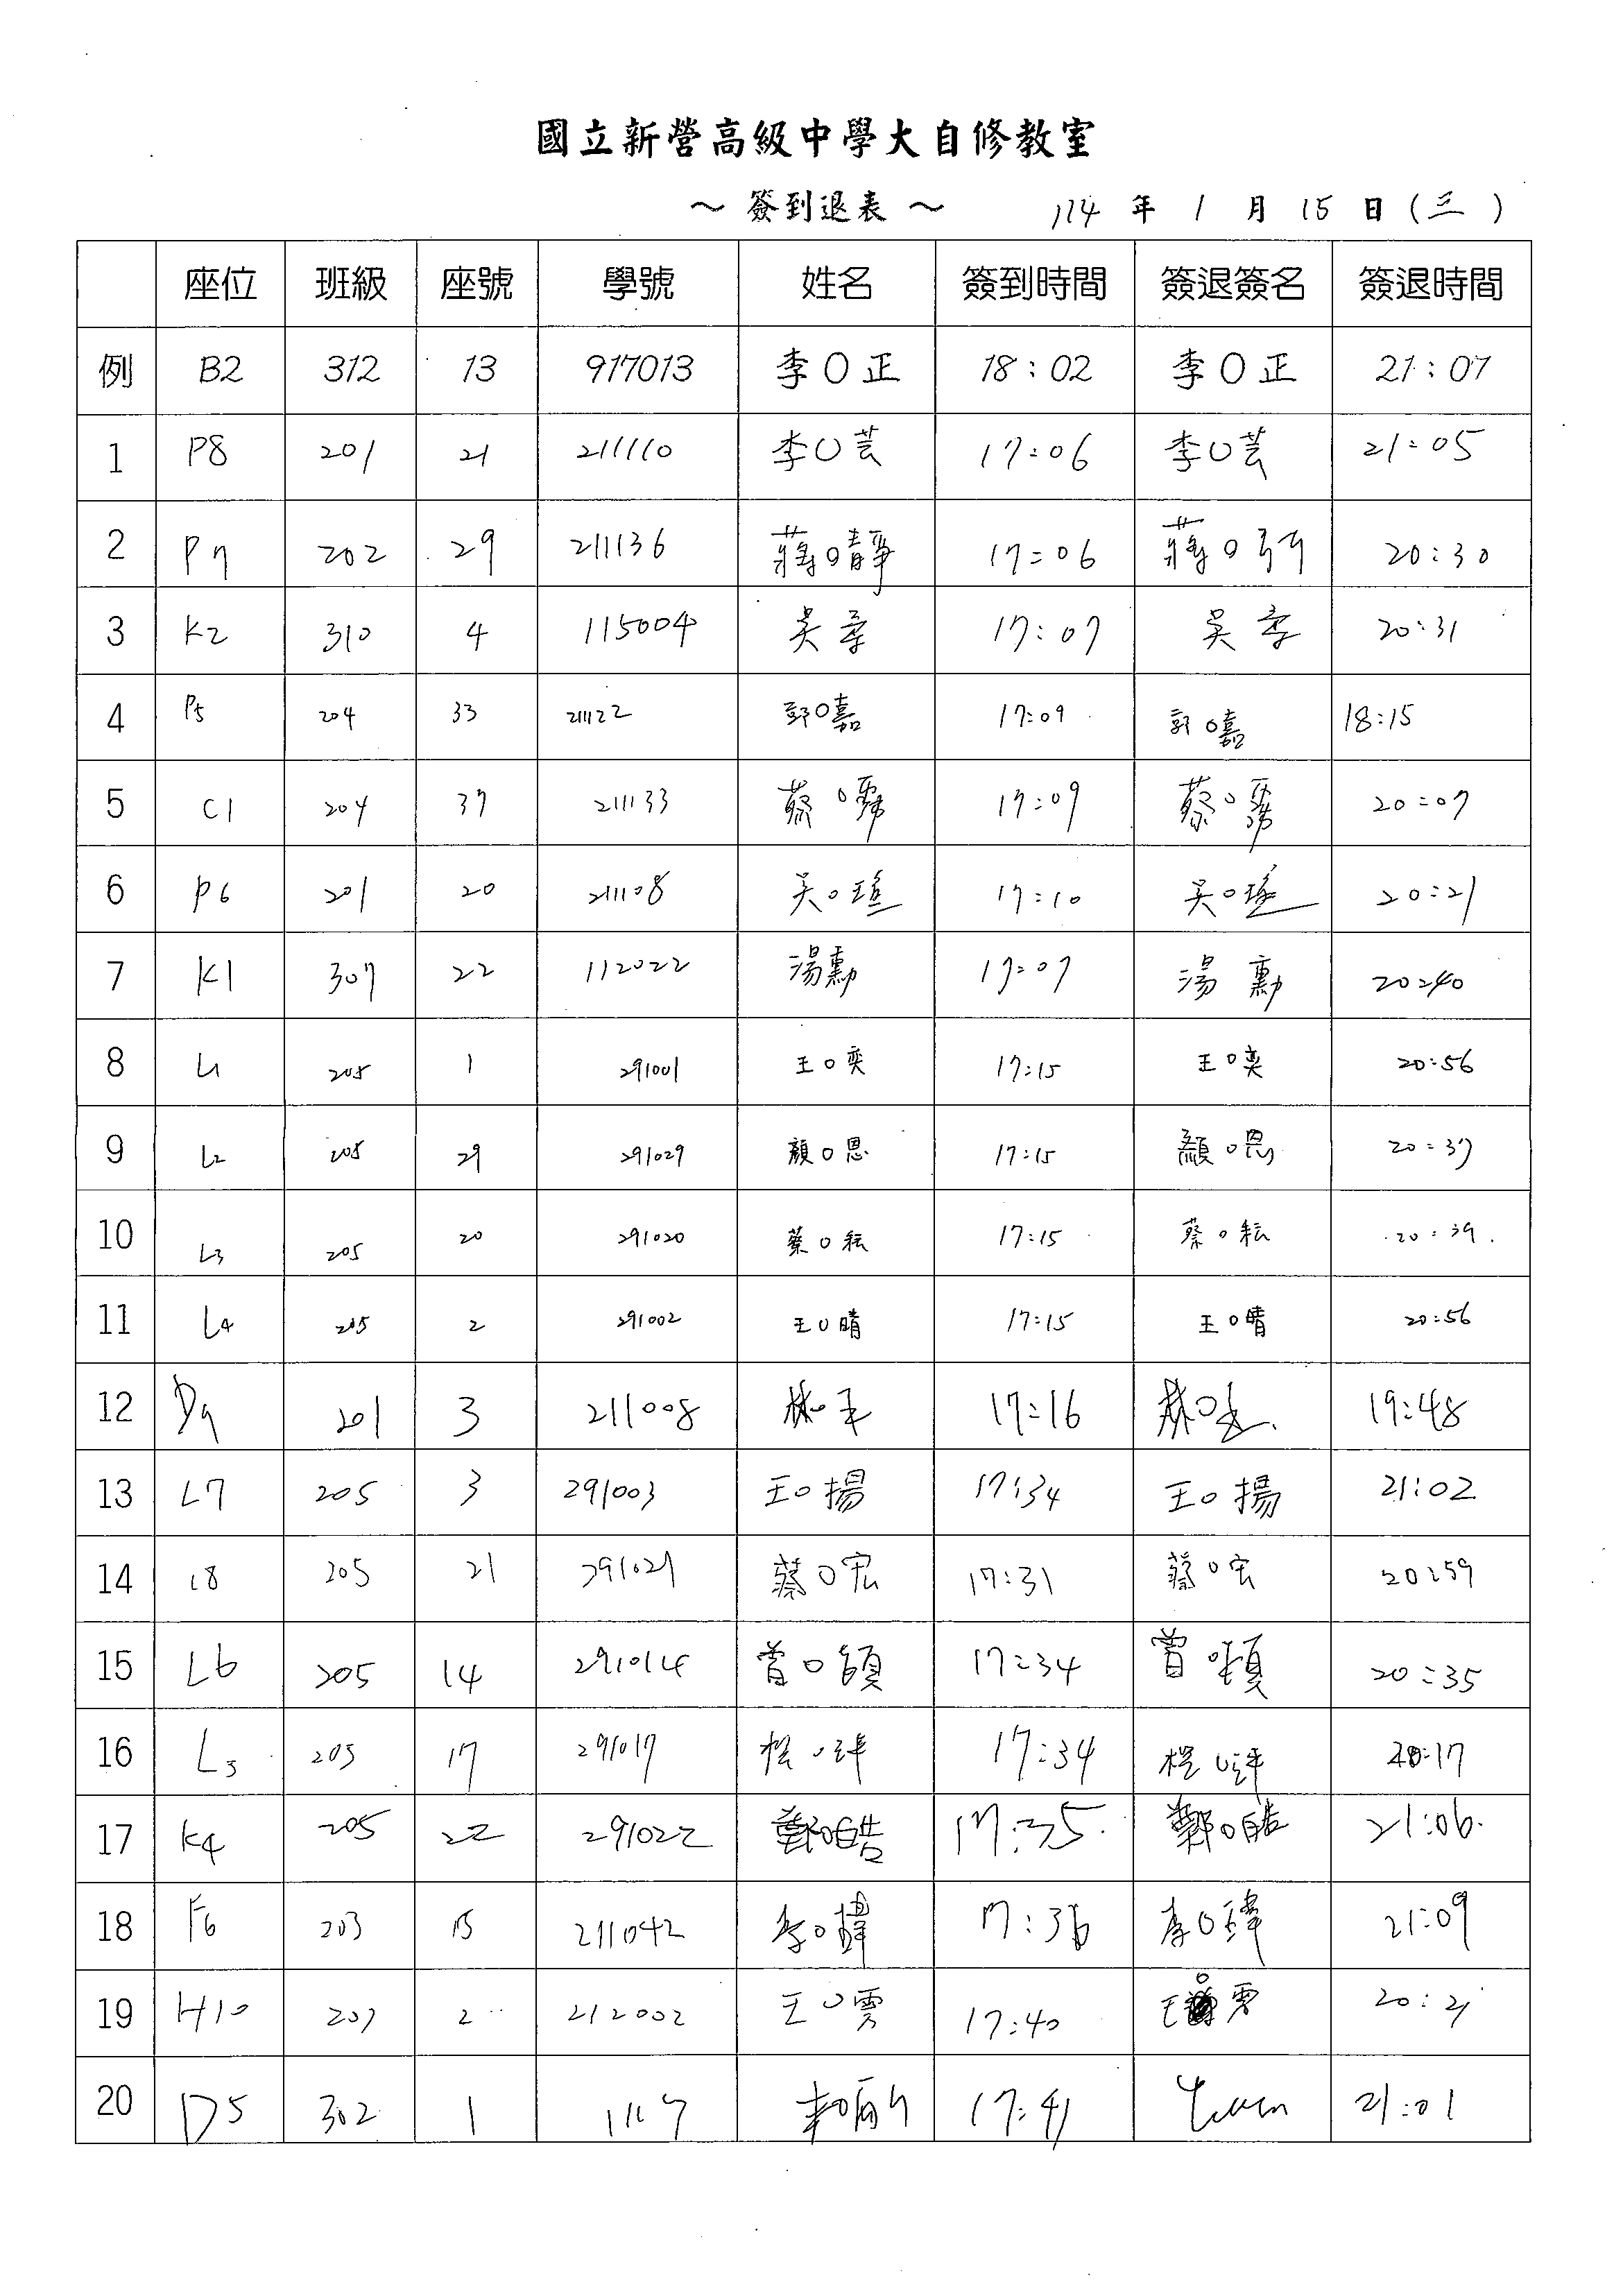 國立新營高級中學大自修教室
～ 簽到退表 ～ 114 年 1 月 15 日 (三)
座位 班級 座號 學號 姓名 簽到時間 簽退簽名 簽退時間
例 B2 312 13 917013 李〇正 18:02 李〇正 21:07
1 P8 201 21 211110 李〇芸 17:06 李〇芸 21:05
2 P7 202 29 211136 蔣〇靜 17:06 蔣〇 20:30
3 K2 310 4 115004 吳 17:07 吳 20:31
4 P5 204 33 211122 郭〇嘉 17:09 郭〇嘉 18:15
5 C1 204 37 211133 蔡〇 17:09 蔡〇 20:07
6 P6 201 20 211108 吳〇瑤 17:10 吳〇瑤 20:21
7 K1 307 22 112022 湯勳 17:07 湯勳 20:40
8 L1 205 1 291001 王〇奕 17:15 王〇奕 20:56
9 L2 205 29 291029 顏〇恩 17:15 顏〇恩 20:37
10 L3 205 20 291020 蔡〇耘 17:15 蔡〇耘 20:39
11 L4 205 2 291002 王〇晴 17:15 王〇晴 20:56
12 201 3 211008 林〇 17:16 林〇 19:48
13 L7 205 3 291003 王〇揚 17:34 王〇揚 21:02
14 L8 205 21 291021 蔡〇宏 17:31 蔡〇宏 20:59
15 L6 205 14 291014 曾〇 17:34 曾〇 20:35
16 L5 205 17 291017 程〇評 17:34 程〇評 20:17
17 K4 205 22 291022 鄭〇皓 17:35 鄭〇皓 21:06
18 F6 203 15 211042 李〇 17:36 李〇 21:09
19 H10 207 2 212002 王〇雯 17:40 王〇雯 20:21
20 D5 302 1 17:41 21:01